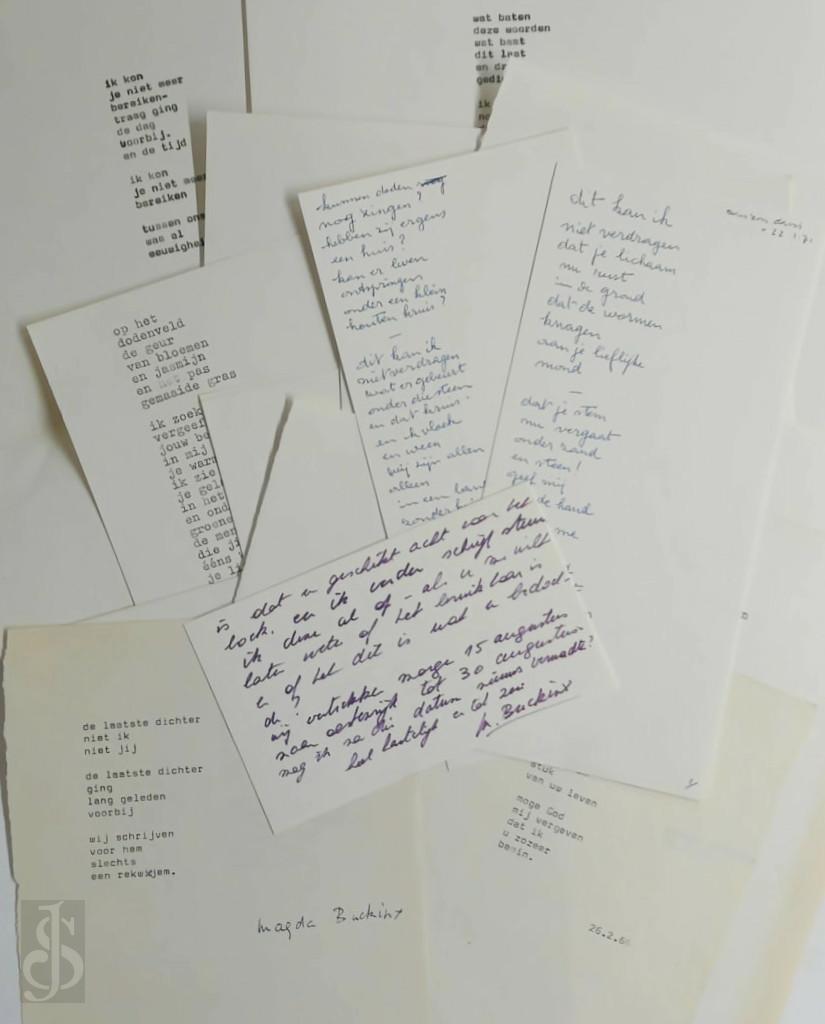 ik kon
je niet meer
bereiken-
traag ging
de dag
voorbij.
en de tijd
ik kon
je niet meer
bereiken
tussen ons
was al
eeuwighei
wat baten
deze woorden
wat baat
dit
en
gedi
ik
op het
dodenveld
de geur
van bloemen
en jasmijn
en het pas
gemaaide gras
ik zoek
vergeef
jouw be
in mij
je warm
ik zie
je gel
in het
en ond
groene
de men
die ji
ééns
je li
kunnen doden
nog zingen?
hebben zij ergens
een huis?
kan er leven
ontspringen
onder een klein
houten kruis?
—
dit kan ik
niet verdragen
wat er gebeurt
onder die steen
en dat kruis.
en ik vloek
en ween
wij zijn allen
alleen
in een lan
zonder
dit kan ik
niet verdragen
dat je lichaam
nu rust
in de grond
dat de wormen
knagen
aan je lieflijke
mond
—
dat je stem
nu vergaat
onder zand
en steen!
geef mij
de hand
me
is dat u geschikt acht voor het
boek. en ik verder schrijf
ik deze al op – als u me wilt
laten weten of het bruikbaar is
en of het dit is wat u bedoel
wij vertrekken morgen 15 augustus
naar oostenrijk tot 30 augustus.
mag ik na die datum nieuws verwachten?
heel hartelijk en tot
M. Buckinx
de laatste dichter
niet ik
niet jij
de laatste dichter
ging
lang geleden
voorbij
wij schrijven
voor hem
slechts
een rekwiejem.
Magda Buckinx
stuk
van uw leven
moge God
mij vergeven
dat ik
u zozeer
bemin.
26.2.6
JS